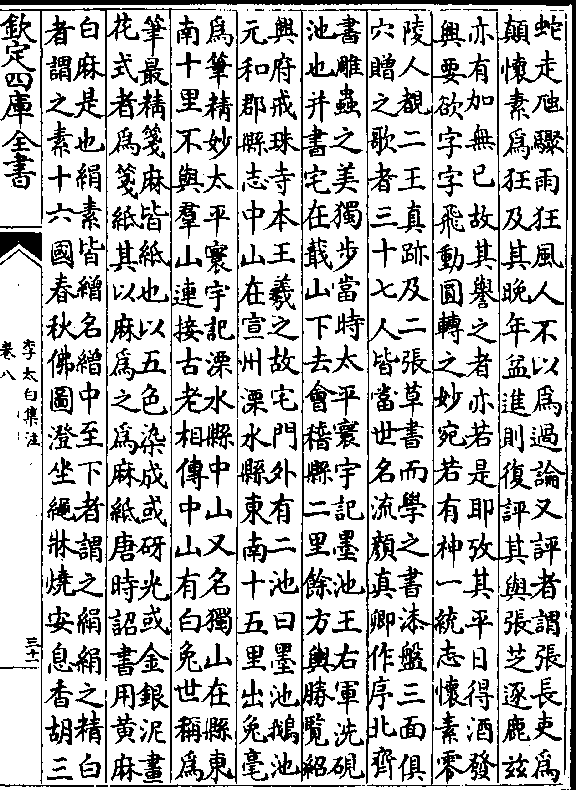 蛇走虺驟雨狂風人不以爲過論又評者謂張長史爲
顛懷素爲狂及其晚年益進則復評其與張芝逐鹿兹
亦有加無已故其譽之者亦若是耶攷其平日得酒發
興要欲字字飛動圓轉之妙宛若有神一統志懷素零
陵人覩二王真跡及二張草書而學之書漆盤三面俱
穴贈之歌者三十七人皆當世名流顔真卿作序北齊
書雕蟲之美獨步當時太平寰宇記墨池王右軍洗硯
池也并書宅在蕺山下去會稽縣二里餘方輿勝覽紹
興府戒珠寺本王羲之故宅門外有二池曰墨池鵝池
元和郡縣志中山在宣州溧水縣東南十五里出兔毫
爲筆精妙太平寰宇記溧水縣中山又名獨山在縣東
南十里不與羣山連接古老相傳中山有白兔世稱爲
筆最精箋麻皆紙也以五色染成或砑光或金銀泥畫
花式者爲箋紙其以麻爲之爲麻紙唐時詔書用黄麻
白麻是也絹素皆繒名繒中至下者謂之絹絹之精白
者謂之素十六國春秋佛圖澄坐繩牀燒安息香胡三
欽定四庫全書
李太白集注
卷八
三十一